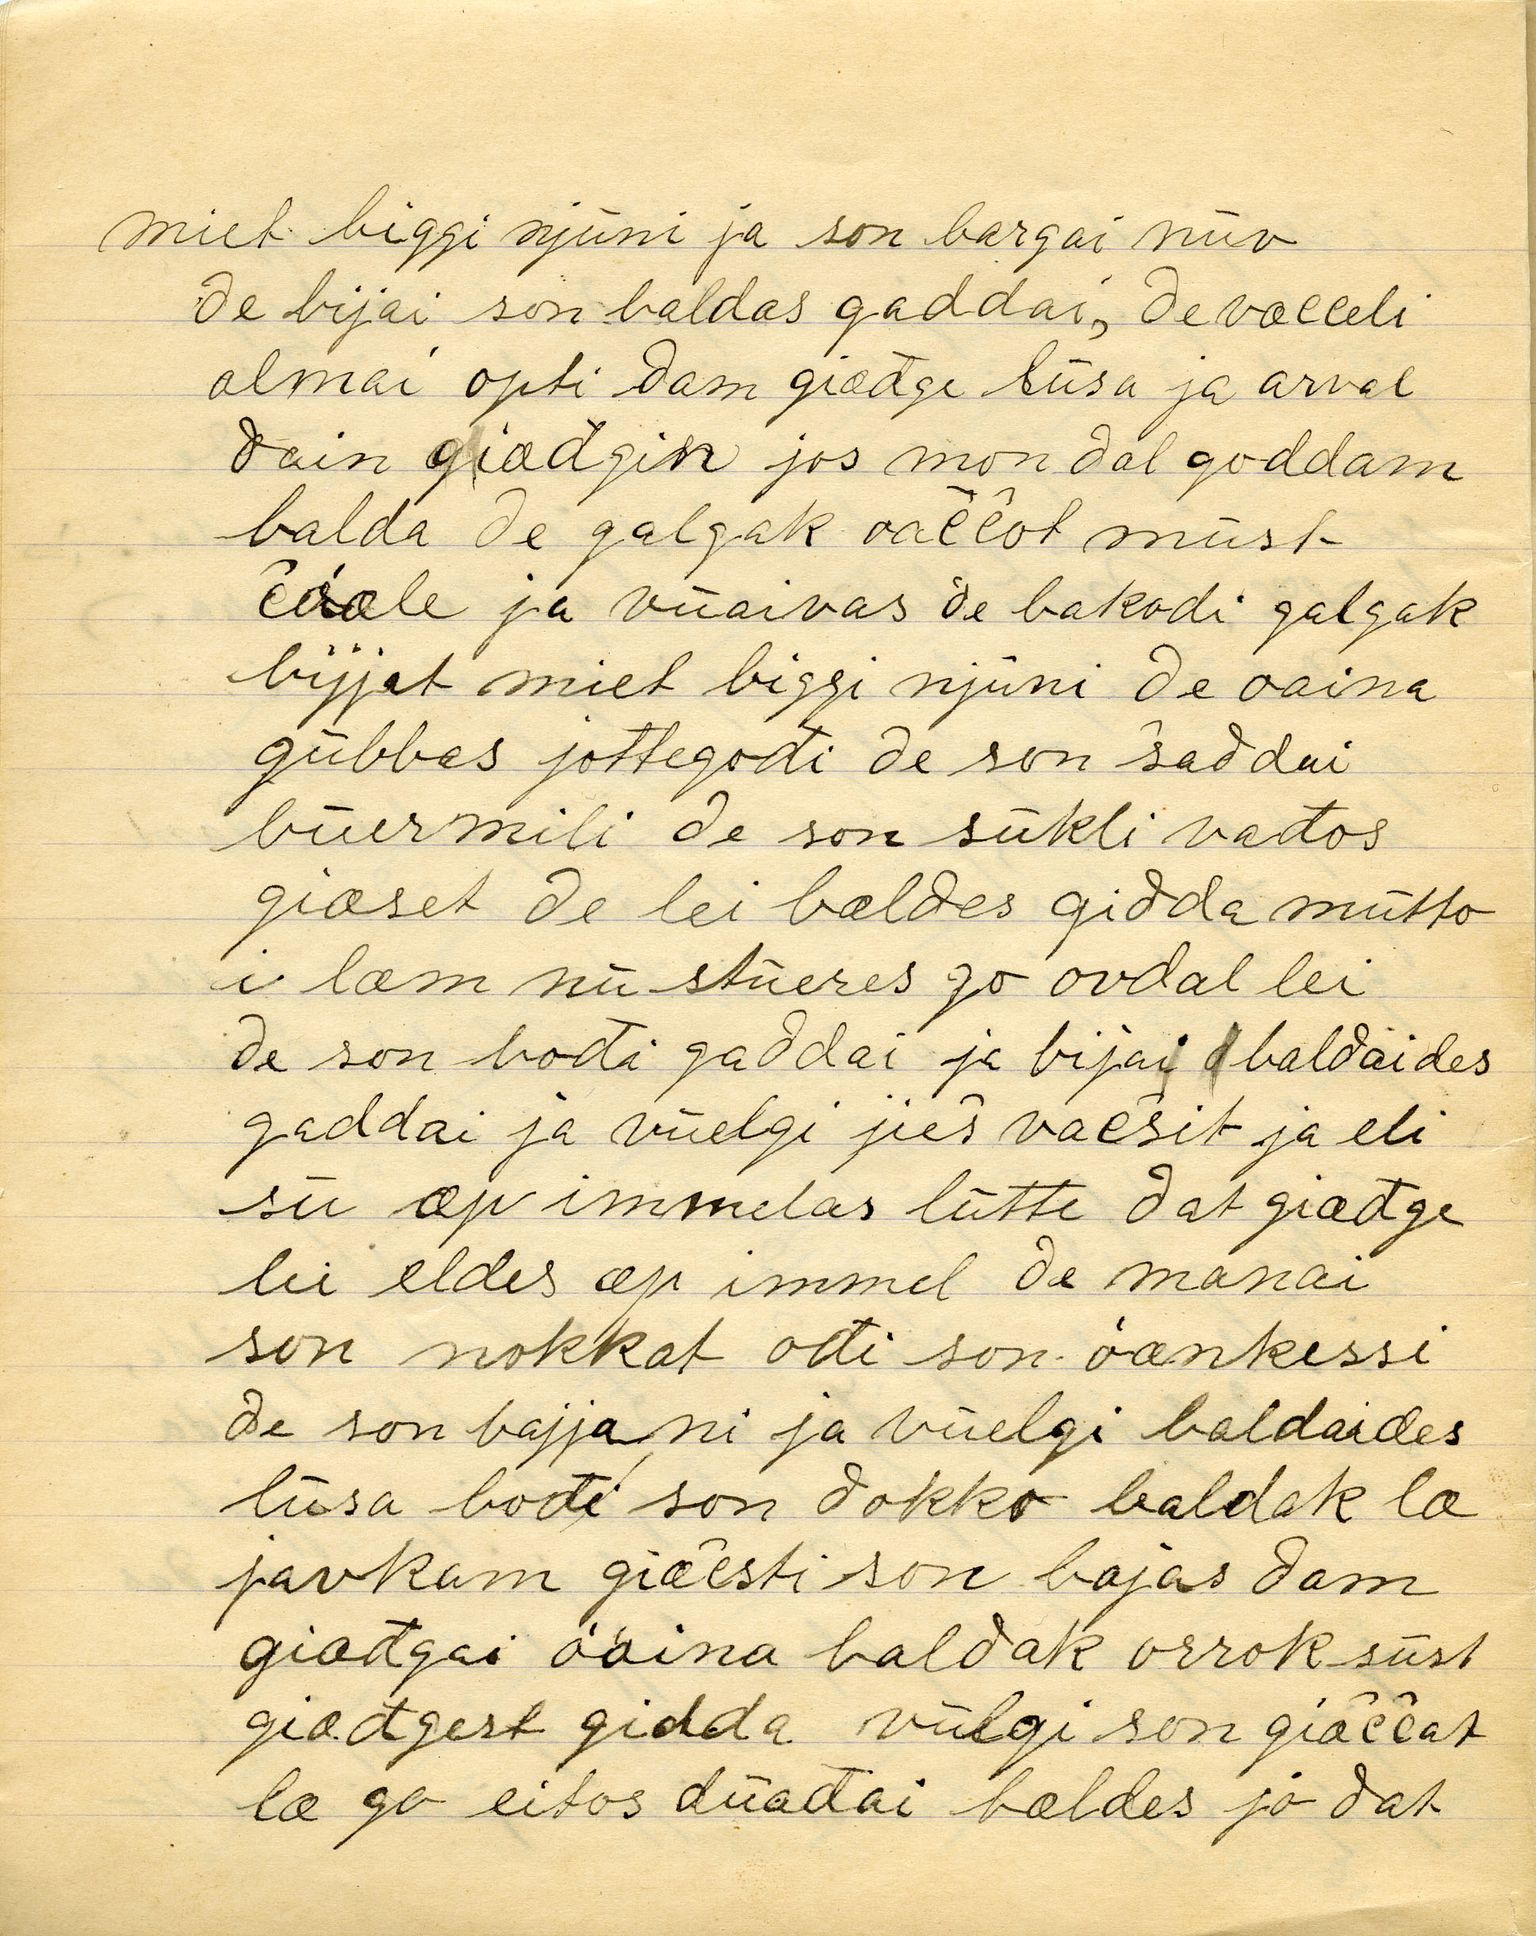 miet biggi njūni ja son bargai nūv
de bijai son baldas gaddai, de vælleli
olmai opti dam giæđge lūsa ja arval
dain giæđgin jos mon dal goddam
balda de galgak oaĉĉot mūst
ĉiæle ja vūaivas de bakodi galgak
bijjat miet biggi njūni de oaina
gūbbas jottegođi de son ŝaddai
būermili de son sūkli vađos
giæset de lei bældes gidda mūtto
i læm nū stūeres go ovdal lei
de son bođi gaddai ja bijai baldaides
gaddai ja vūelgi jieŝ vaĉsit ja eli
sū æp immelas lūtte dat giæđge
lei eldes æp immel de manai
son nokkat ođi son óænkessi
de son bajjani ja vūelgi baldaides
lūsa bođi son dokko baldak læ
javkam giæĉsti son bajas dam
giæđgai óaina baldak orrok sūst
giæđgest gidda vūlgi son giæĉĉat
læ go eitos dūađai bældes jo dat